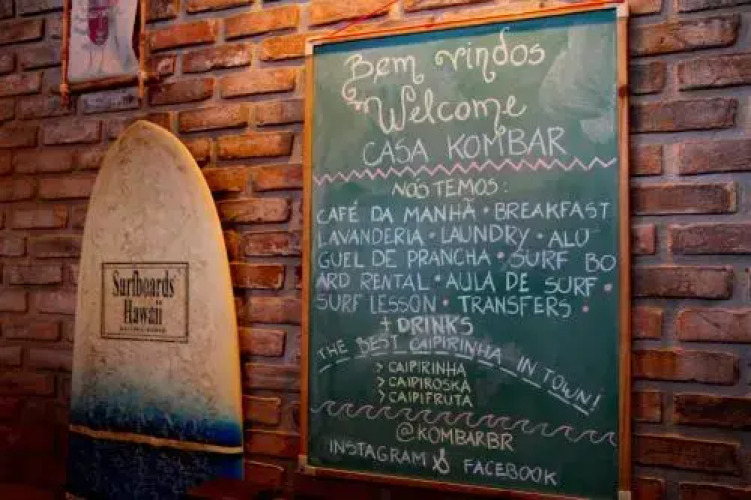 Bem vindos
Welcome
CASA KOMBAR
NÓS TEMOS:
CAFÉ DA MANHÃ • BREAKFAST
LAVANDERIA • LAUNDRY • ALU
GUEL DE PRANCHA • SURF BO
ARD RENTAL • AULA DE SURF •
SURF LESSON • TRANSFERS •
+ DRINKS
THE BEST CAIPIRINHA IN TOWN!
> CAIPIRINHA
> CAIPIROSKA
> CAIPIFRUTA
@KOMBARBR
INSTAGRAM & FACEBOOK
Surfboards
Hawaii